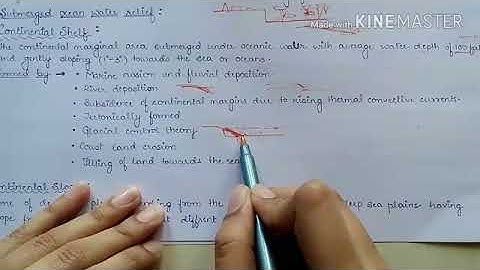 Made with KINEMASTER
Submerged ocean water relief:
Continental Shelf:
The continental marginal area submerged under oceanic water with average water depth of 100 fat
and gently sloping (1°-3°) towards the sea or oceans.
formed by → • Marine erosion and fluvial deposition
• River deposition
• Subsidence of continental margins due to rising thermal convective current.
• Tectonically formed
• Glacial control theory
• Coast land erosion
• Tilting of land towards the sea
Continental Slope:
one of de from the deep sea plains having
ope fr diffrent